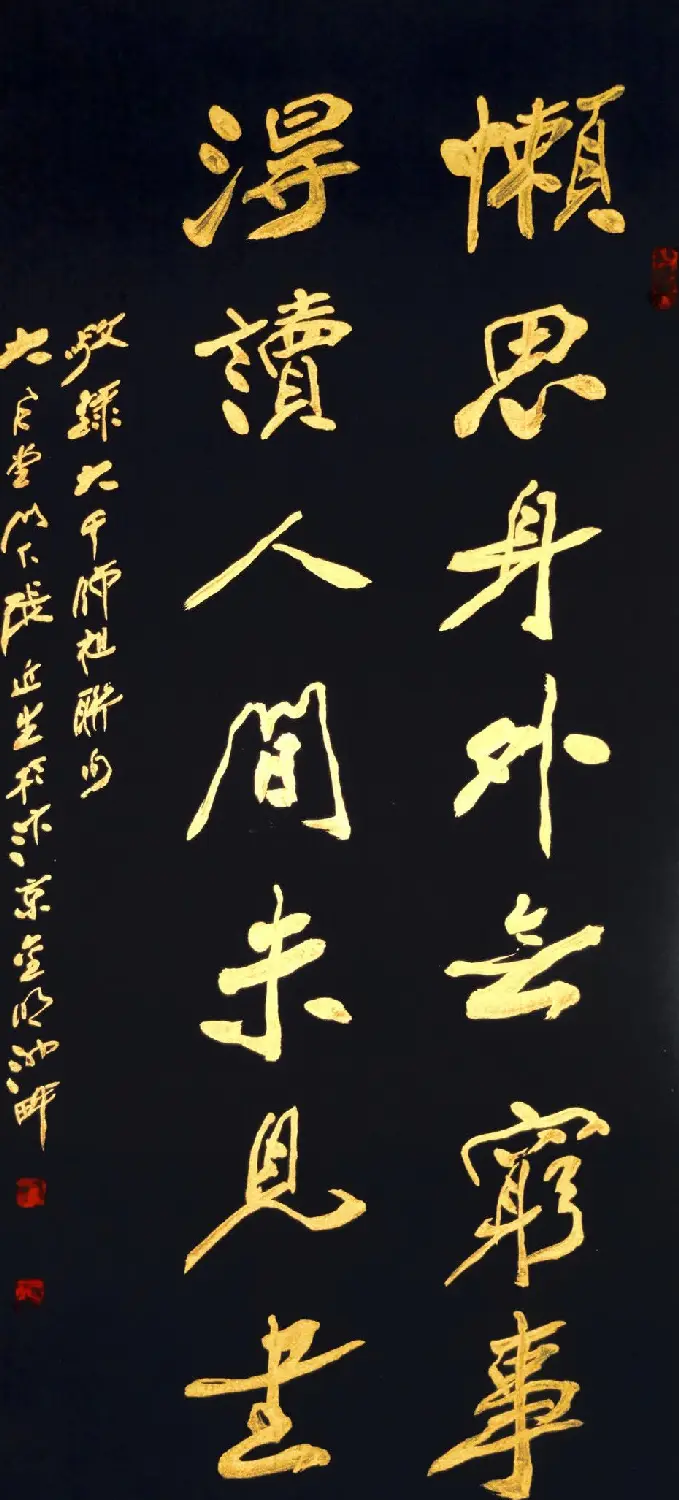 懶思身外无窮事
淂讀人間未見書
敬錄大千師祖聯句
大風堂門下張近生於汴京金明池畔